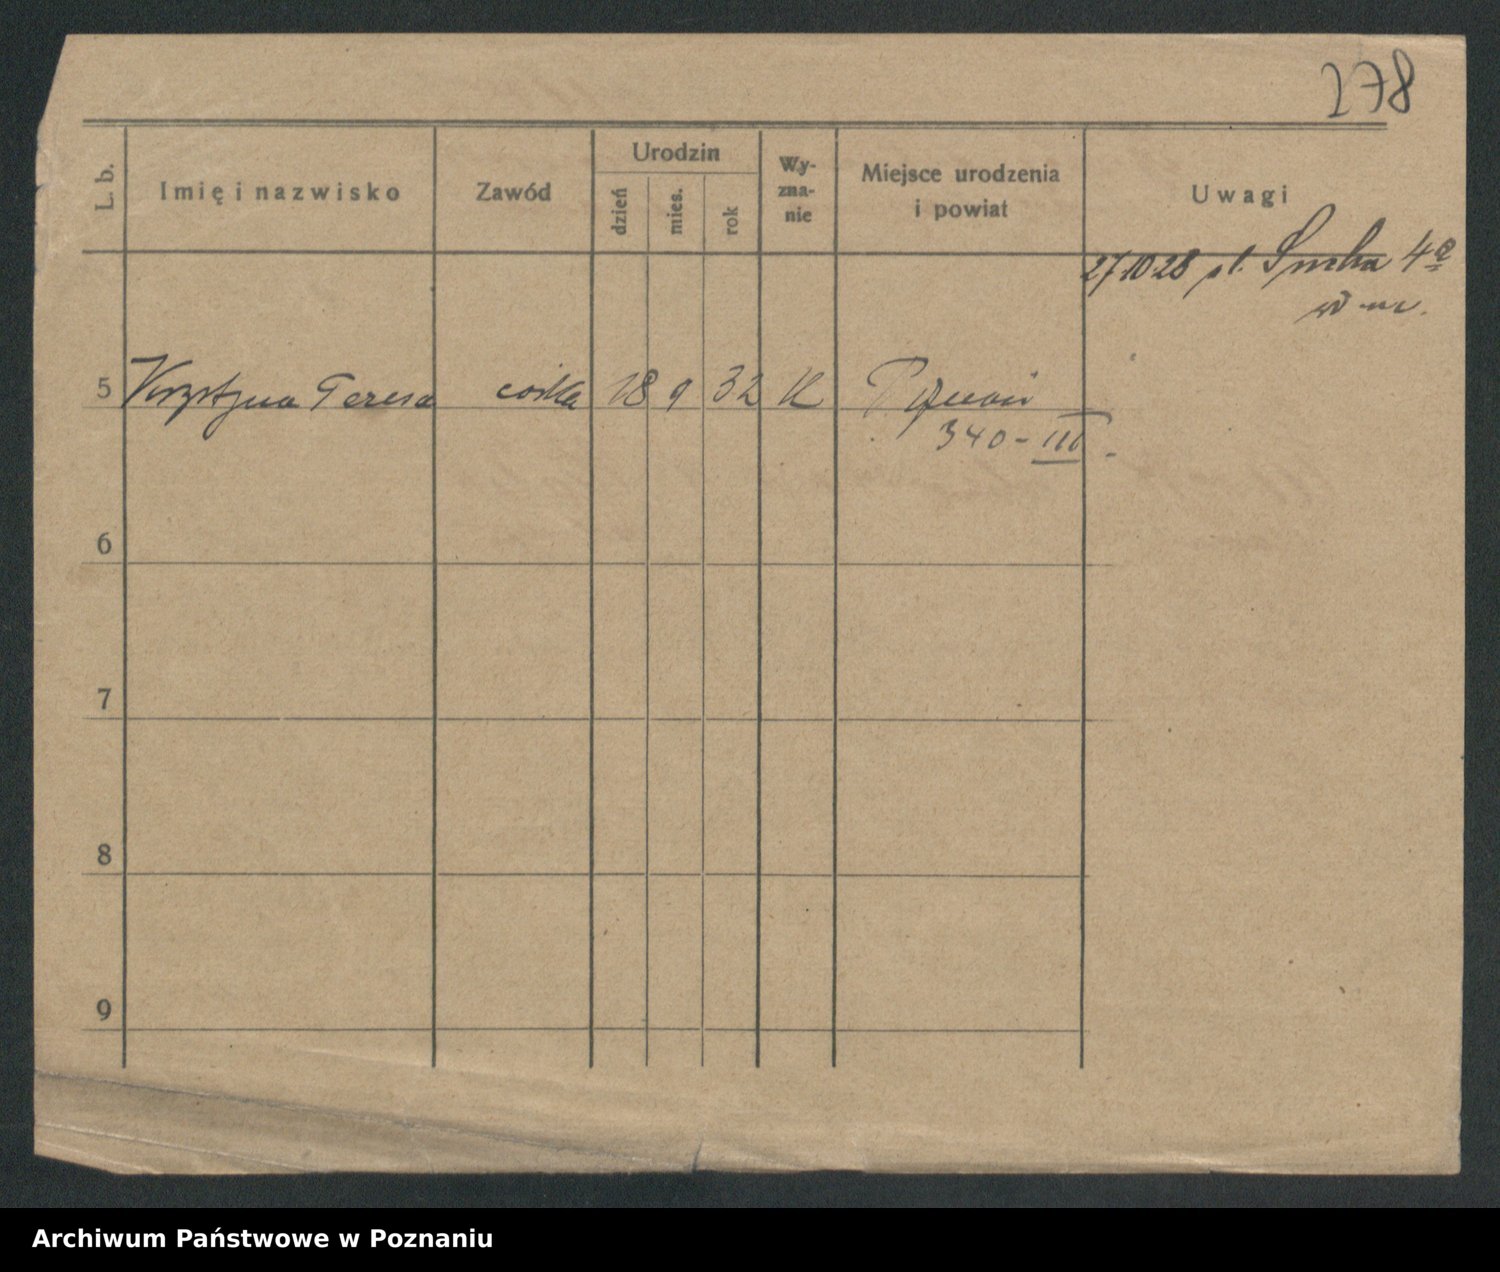 278
L. b. Imię i nazwisko Zawód Urodzin dzień mies. rok Wy-zna-nie Miejsce urodzenia i powiat Uwagi
27.10.28 ul. 4a
5 Krzystyna Teresa córka 18 9 32 K Poznań
340-III.
6
7
8
9
Archiwum Państwowe w Poznaniu